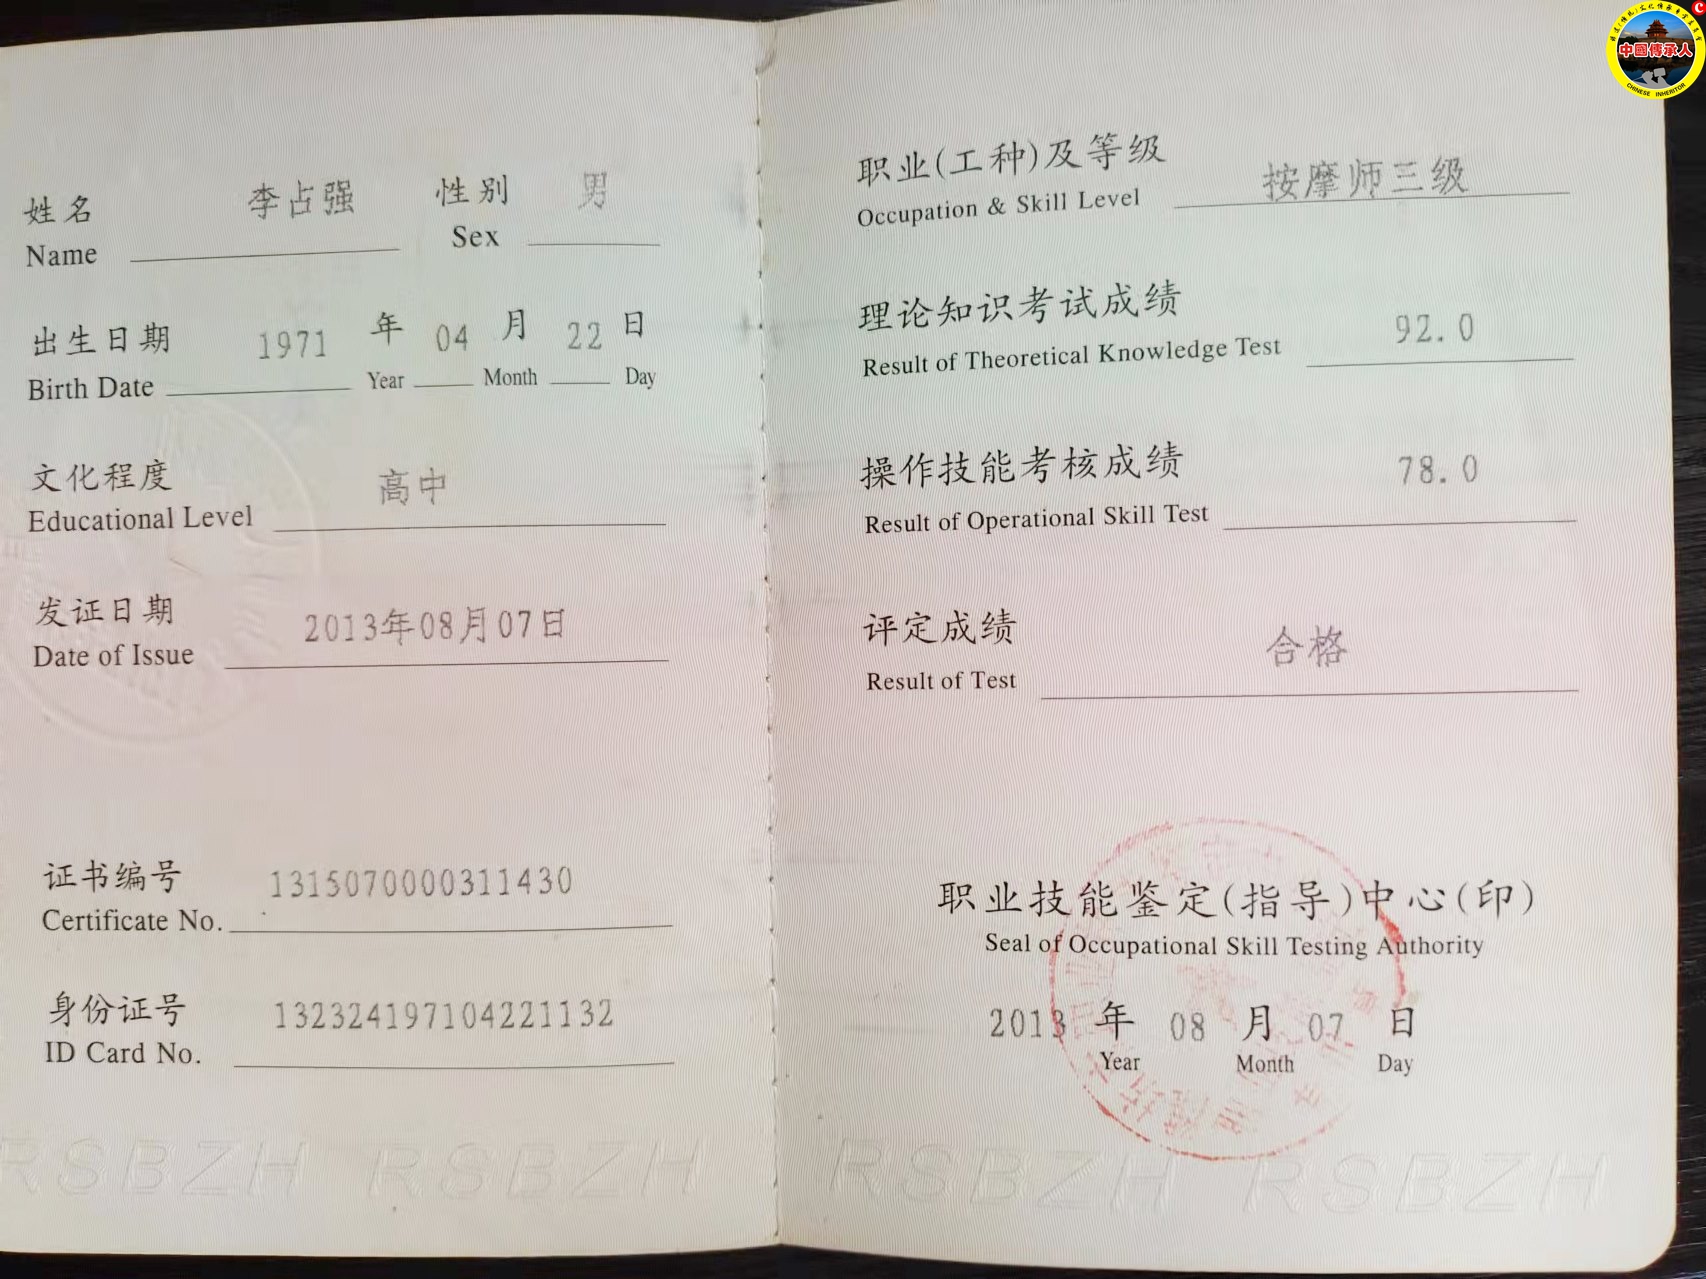 姓名 李占强 性别 男
Name Sex
出生日期 1971 年 04 月 22 日
Birth Date Year Month Day
文化程度 高中
Educational Level
发证日期 2013年08月07日
Date of Issue
证书编号 1315070000311430
Certificate No.
身份证号 132324197104221132
ID Card No.
RSBZH RSBZH
职业(工种)及等级 按摩师三级
Occupation & Skill Level
理论知识考试成绩 92.0
Result of Theoretical Knowledge Test
操作技能考核成绩 78.0
Result of Operational Skill Test
评定成绩 合格
Result of Test
职业技能鉴定(指导)中心(印)
Seal of Occupational Skill Testing Authority
2013 年 08 月 07 日
Year Month Day
RSBZH RSBZH
中國傳承人
CHINESE INHERITOR